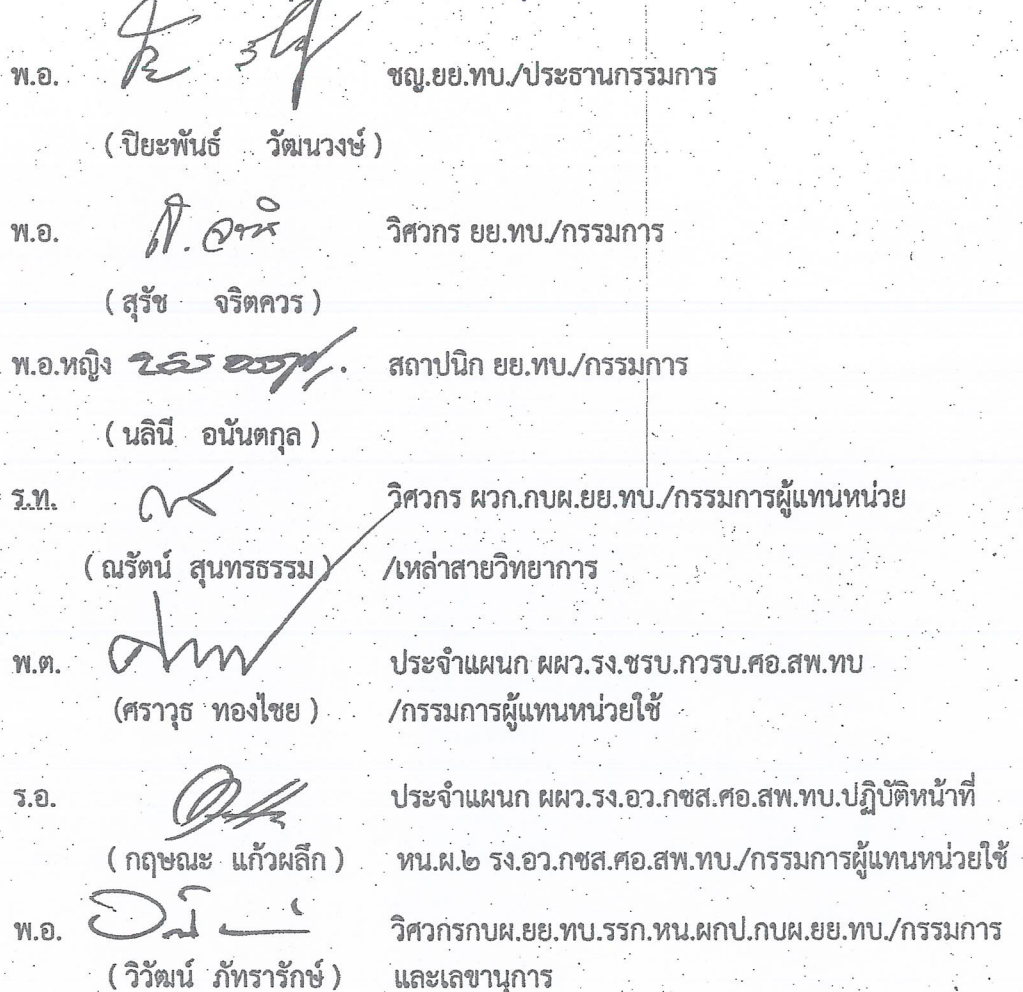 พ.อ. ชญ.ยย.ทบ./ประธานกรรมการ
( ปิยะพันธ์ วัฒนวงษ์ )
พ.อ. วิศวกร ยย.ทบ./กรรมการ
( สุรัช จริตควร )
พ.อ.หญิง สถาปนิก ยย.ทบ./กรรมการ
( นลินี อนันตกุล )
ร.ท. วิศวกร ผวก.กบผ.ยย.ทบ./กรรมการผู้แทนหน่วย
( ณรัตน์ สุนทรธรรม ) /เหล่าสายวิทยาการ
พ.ต. ประจำแผนก ผผว.รง.ซรบ.กวรบ.ศอ.สพ.ทบ
(ศราวุธ ทองไชย ) /กรรมการผู้แทนหน่วยใช้
ร.อ. ประจำแผนก ผผว.รง.อว.กซส.ศอ.สพ.ทบ.ปฏิบัติหน้าที่
( กฤษณะ แก้วผลึก ) หน.ผ.๒ รง.อว.กซส.ศอ.สพ.ทบ./กรรมการผู้แทนหน่วยใช้
พ.อ. วิศวกรกบผ.ยย.ทบ.รรก.หน.ผกป.กบผ.ยย.ทบ./กรรมการ
( วิวัฒน์ ภัทรารักษ์ ) และเลขานุการ